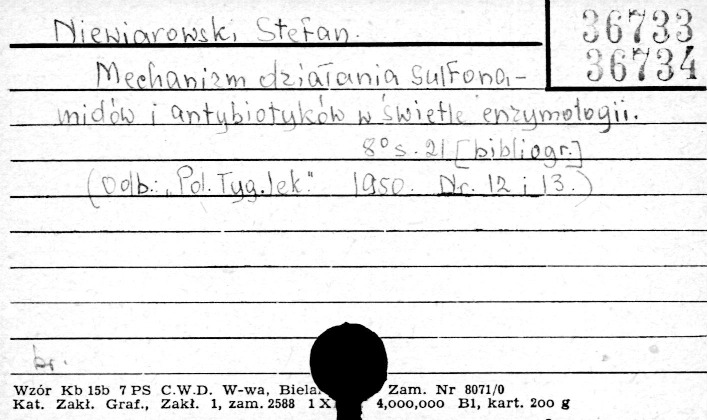 Niewiarowski Stefan.
36733
36734
Mechanizm działania sulfona-
midów i antybiotyków w świetle enzymologii.
8° s. 21 [bibliogr.]
(Odb.: „Pol. Tyg. lek." 1950. Nr. 12 i 13.)
br.
Wzór Kb 15b 7 PS C.W.D. W-wa, Biela Zam. Nr 8071/0
Kat. Zakł. Graf., Zakł. 1, zam. 2588 1 X 4,000,000 B1, kart. 200 g